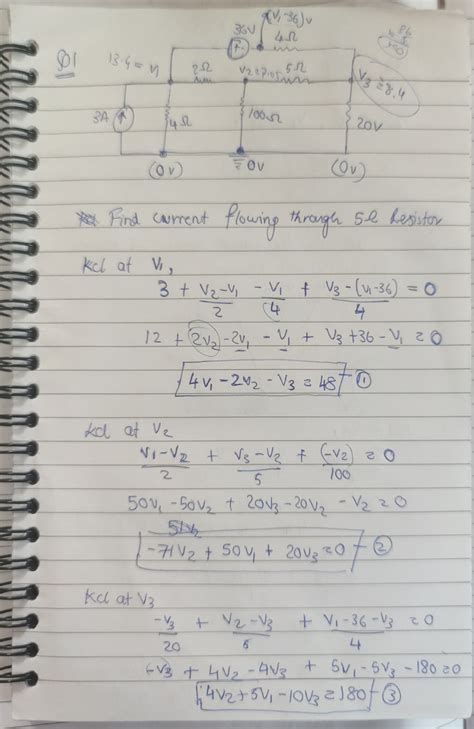 Q1
36V
(V₁-36)v
4Ω
13.4 = V₁
2Ω
V₂=7.05
5Ω
V₃ = 8.4
3A
4Ω
100Ω
20V
(0v)
0v
(0v)
Find current flowing through 5Ω Resistor
Kcl at V₁,
3 + (V₂-V₁)/2 - V₁/4 + (V₃-(V₁-36))/4 = 0
12 + 2V₂ - 2V₁ - V₁ + V₃ + 36 - V₁ = 0
4V₁ - 2V₂ - V₃ = 48 - ①
Kcl at V₂
(V₁-V₂)/2 + (V₃-V₂)/5 + (-V₂)/100 = 0
50V₁ - 50V₂ + 20V₃ - 20V₂ - V₂ = 0
51V₂
-71V₂ + 50V₁ + 20V₃ = 0 - ②
Kcl at V₃
-V₃/20 + (V₂-V₃)/5 + (V₁-36-V₃)/4 = 0
-V₃ + 4V₂ - 4V₃ + 5V₁ - 5V₃ - 180 = 0
4V₂ + 5V₁ - 10V₃ = 180 - ③